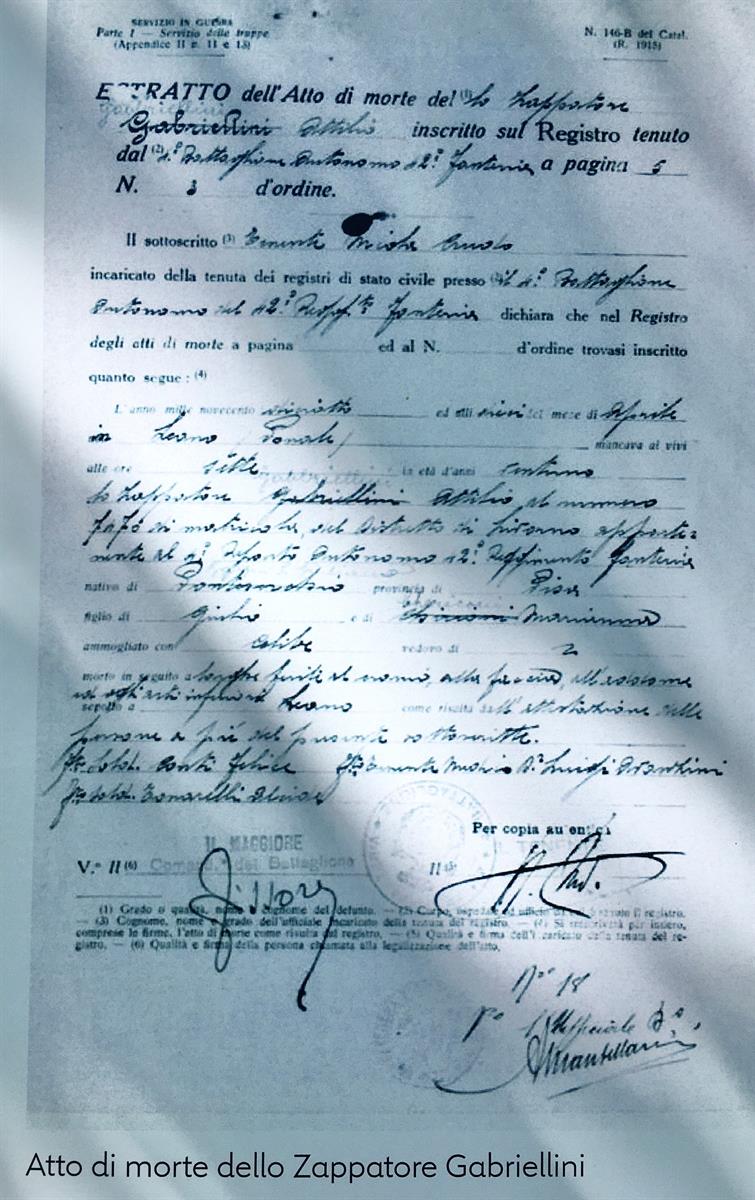 SERVIZIO IN GUERRA
Parte I — Servizio delle truppe
(Appendice II n. 11 e 13)
N. 146-B del Catal.
(R. 1915)
ESTRATTO dell'Atto di morte del (1) lo Zappatore
Gabriellini
Gabriellini Attilio inscritto sul Registro tenuto
dal (2) 4º Battaglione Autonomo 42º Fanteria a pagina 5
N. 3 d'ordine.
Il sottoscritto (3) Tenente Nicola
incaricato della tenuta dei registri di stato civile presso (2) il 4º Battaglione
Autonomo del 42º Regg.to Fanteria dichiara che nel Registro
degli atti di morte a pagina ed al N. d'ordine trovasi inscritto
quanto segue : (4)
L'anno mille novecento diciotto ed alli dieci del mese di Aprile
in Leano (Ponale) mancava ai vivi
alle ore sette in età d'anni ventuno
Gabriellini
lo Zappatore Gabriellini Attilio al numero
di matricola, del Distretto di Livorno apparte-
nente al 4º Reparto Autonomo 42º Reggimento Fanteria
nativo di Pontesecchio provincia di Pisa
figlio di Giulio e di Marianna
ammogliato con celibe vedovo di
morto in seguito a larghe feriti al cranio, alla faccia, all'addome
ed agli arti inferiori
sepolto a Leano come risulta dall'attestazione delle
persone a piè del presente sottoscritte.
Fto Sold. Conti Felice Fto Tenente Medico Dr Luigi
Fto Sold. Tonarelli
Per copia autentica
IL MAGGIORE
V.º Il (6) Comand.te del Battaglione Il (5) IL TENENTE
(1) Grado o qualità, nome e cognome del defunto. — (2) Corpo, ospedale od ufficio di cui è tenuto il registro.
— (3) Cognome, nome e grado dell'ufficiale incaricato della tenuta del registro. — (4) Si trascriverà per intiero,
comprese le firme, l'atto di morte come risulta dal registro. — (5) Qualità e firma dell'incaricato della tenuta del re-
gistro. — (6) Qualità e firma della persona chiamata alla legalizzazione dell'atto.
Nº 18
Atto di morte dello Zappatore Gabriellini